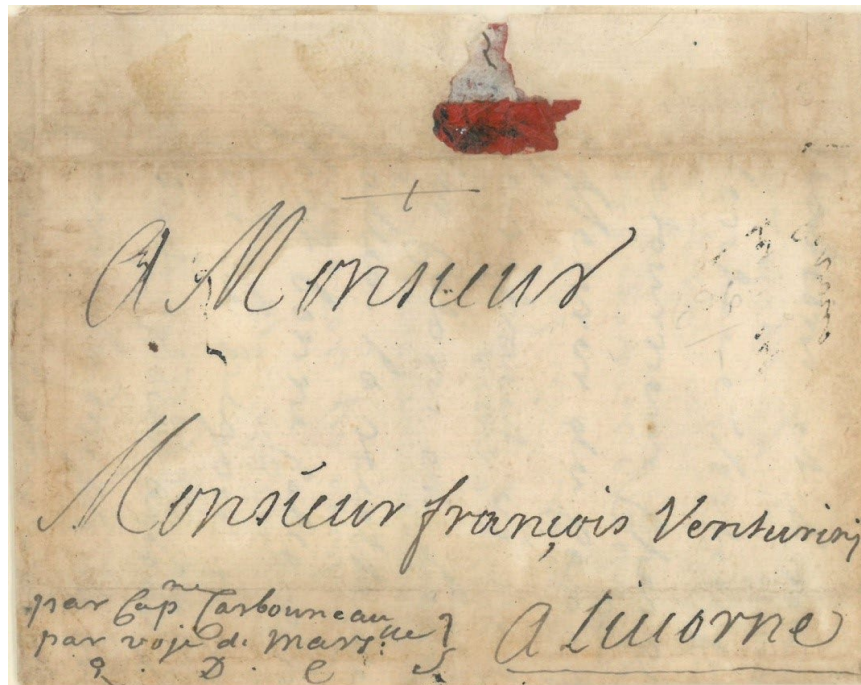 A Monsieur
Monsieur françois Venturinj
par Cap.ne Carbouneau
par voje de Mars.lle
Q. D. C. S
A Livorne